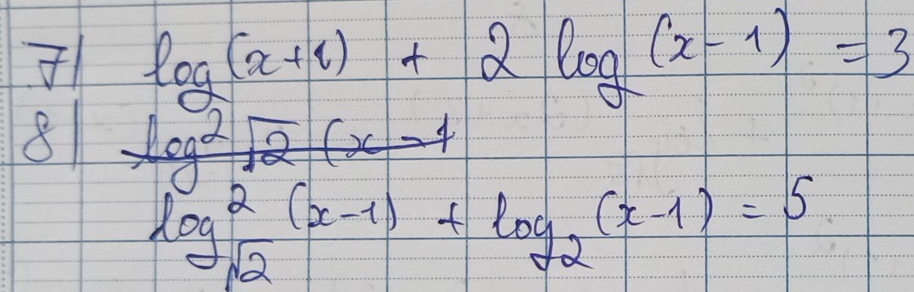 7) log(x+1) + 2 log(x-1) = 3
8) ~~log² √2 (x-1~~
log²_√2 (x-1) + log₂(x-1) = 5